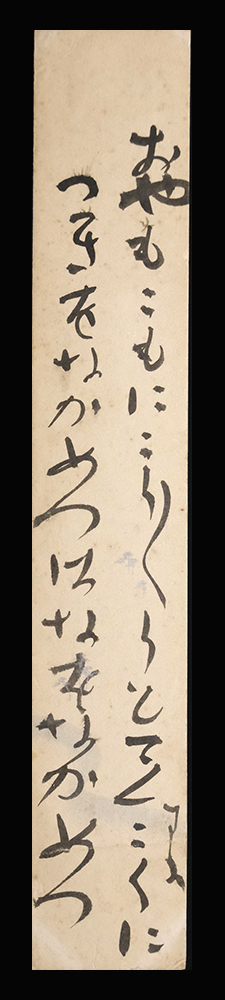 おやもこもにこり〳〵とてんこくに
つきをなかめつはなをなかめつ